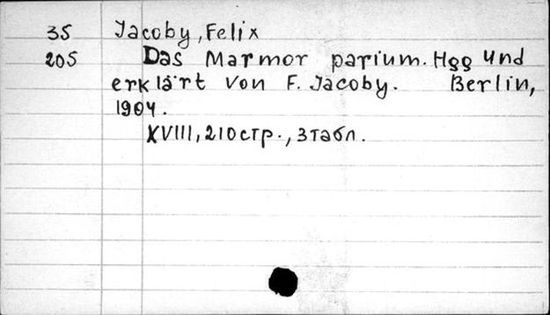 35 Jacoby, Felix
205 Das Marmor parium. Hgg und
erklärt von F. Jacoby. Berlin,
1904.
XVIII, 210 стр., 3 табл.